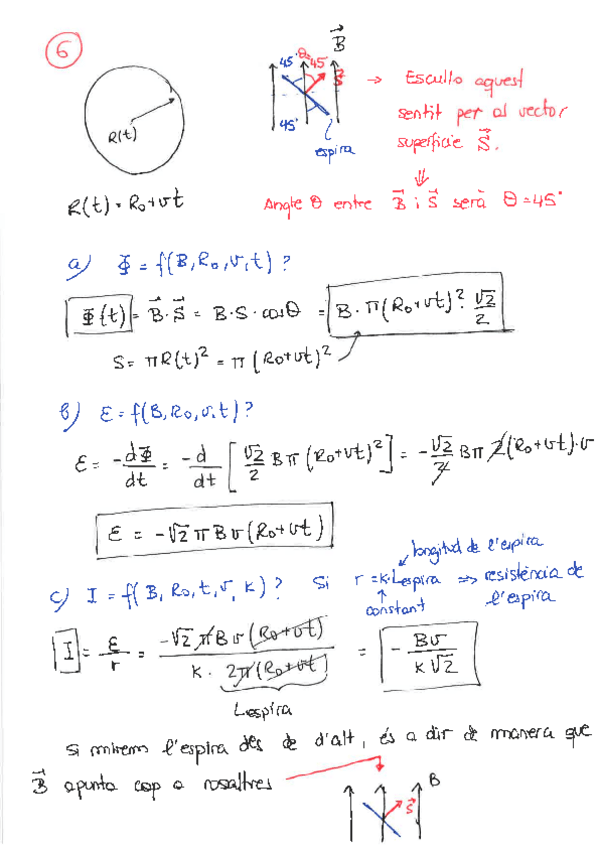 6
R(t)
R(t) = R₀+vt
45° θ 45°
B⃗
S⃗
45°
espira
→ Escullo aquest
sentit per al vector
superfície S⃗.
⇓
Angle θ entre B⃗ i S⃗ serà θ=45°
a) Φ = f(B,R₀,v,t)?
Φ(t) = B⃗·S⃗ = B·S·cosθ = B·π(R₀+vt)²·√2/2
S= πR(t)² = π(R₀+vt)²
b) ε = f(B,R₀,v,t)?
ε = -dΦ/dt = -d/dt [√2/2 Bπ (R₀+vt)²] = -√2/2 Bπ 2(R₀+vt)·v
ε = -√2 π B v (R₀+vt)
longitud de l'espira
c) I = f(B, R₀, t, v, K)? Si r = K·Lespira ⇒ resistència de
constant l'espira
I = ε/r = -√2 π B v (R₀+vt) / K · 2π(R₀+vt) = - Bv / K√2
Lespira
Si mirem l'espira des de d'alt, és a dir de manera que
B⃗ apunta cap a nosaltres
B
S⃗